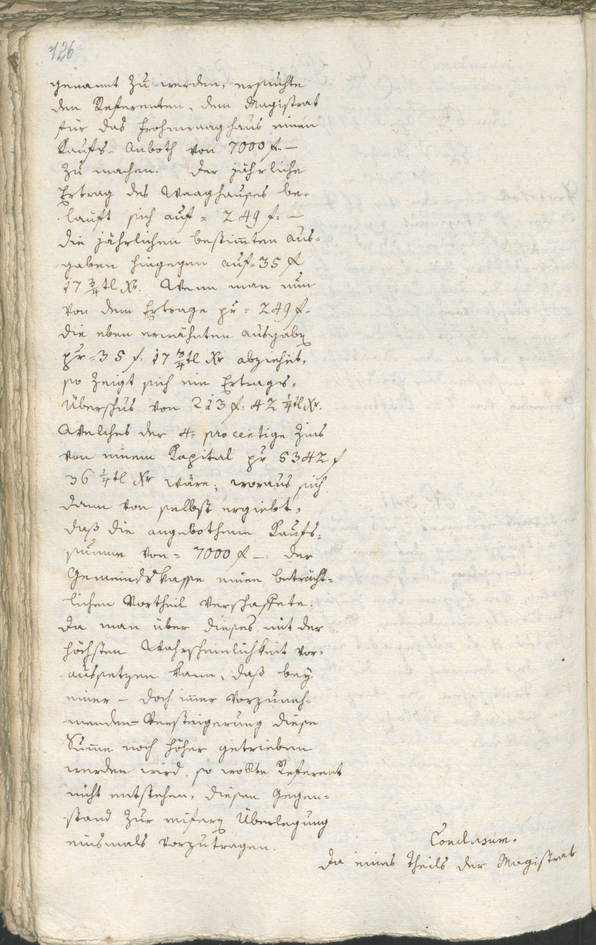 126
genannt zu werden, ersuchte
den Referenten, dem Magistrat
für das Frohnwaaghaus einen
Kaufs-Anboth von 7000 f. —
zu machen. Der jährliche
Ertrag des Waaghauses be-
lauft sich auf = 249 f. —
die jährlichen bestimten Aus-
gaben hingegen auf = 35 f
17 3/4tl Xr. Wenn man nun
von dem Ertrage pr = 249 f.
die eben erwähnten Ausgaben
pr = 35 f. 17 3/4tl Xr abziehet,
so zeigt sich ein Ertrags-
Überschus von 213 f. 42 1/4tl Xr.
Welches der 4. procentige Zins
von einem Kapital pr 5342 f
36 1/4tl Xr wäre; woraus sich
dann von selbst ergiebt,
daß die angebothene Kaufs-
summe von = 7000 f —. der
Gemeindskasse einen beträcht-
lichen Vortheil verschaffete.
Da man über dieses mit der
höchsten Wahrscheinlichkeit vor-
aussetzen kann, daß bey
einer – doch imer vorzuneh-
menden Versteigerung diese
Sume noch höher getrieben
werden wird, so wollte Referent
nicht entstehen, diesen Gegen-
stand zur reifern Überlegung
einsmals vorzutragen.
Conclusum.
Da eines Theils der Magistrat